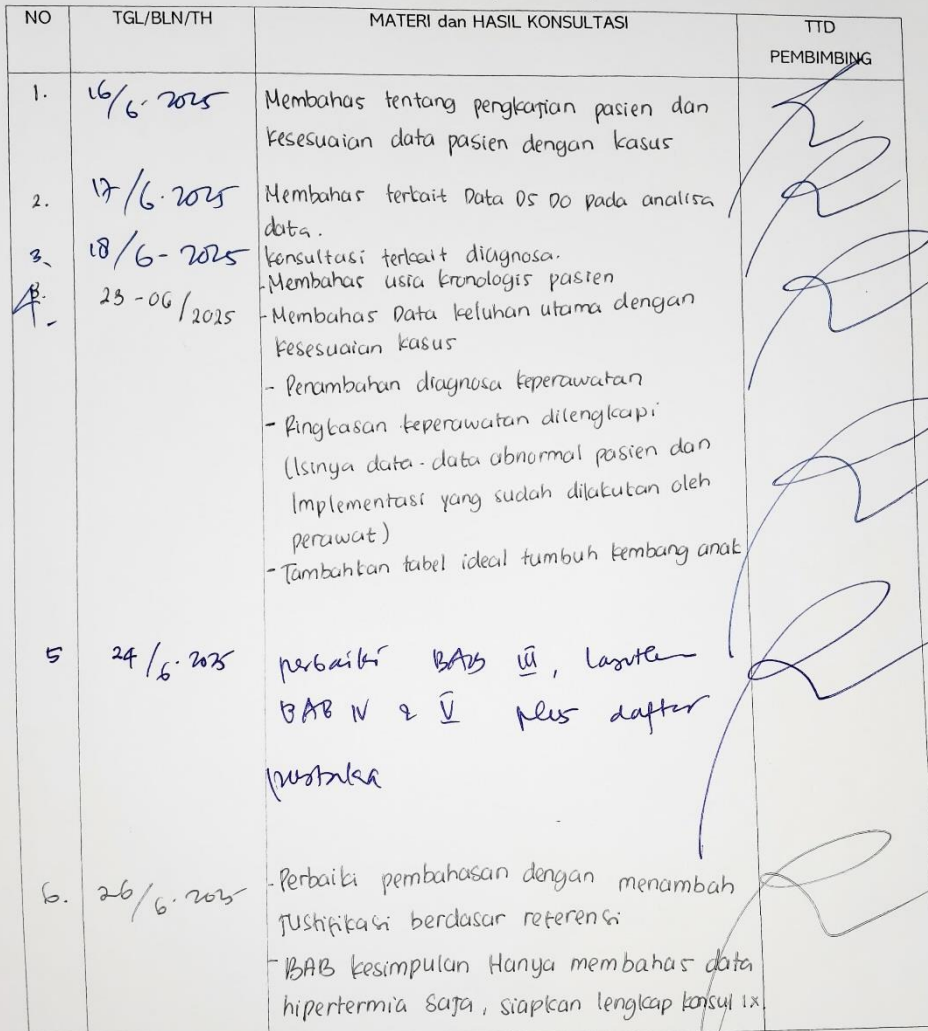 NO TGL/BLN/TH MATERI dan HASIL KONSULTASI TTD
PEMBIMBING
1. 16/6-2025 Membahas tentang pengkajian pasien dan
kesesuaian data pasien dengan kasus
2. 17/6-2025 Membahas terkait Data DS DO pada analisa
data.
3. 18/6-2025 konsultasi terkait diagnosa.
- Membahas usia kronologis pasien
4. 23-06/2025 - Membahas Data keluhan utama dengan
kesesuaian kasus
- Penambahan diagnosa keperawatan
- Ringkasan keperawatan dilengkapi
(Isinya data-data abnormal pasien dan
Implementasi yang sudah dilakukan oleh
perawat)
- Tambahkan tabel ideal tumbuh kembang anak
5 24/6-2025 perbaiki BAB III,
BAB IV & V plus daftar
pustaka
6. 26/6-2025 - Perbaiki pembahasan dengan menambah
Justifikasi berdasar referensi
- BAB kesimpulan Hanya membahas data
hipertermia saja, siapkan lengkap konsul 1x